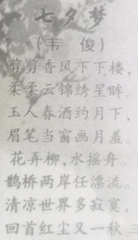 七夕梦
(韦 俊)
剪剪香风下下楼，
柔柔云锦绣星眸。
玉人春酒约月下，
眉笔当窗画月羞。
花弄柳，水摇舟。
鹊桥两岸任漂流。
清凉世界多寂寞，
回首红尘又一秋。